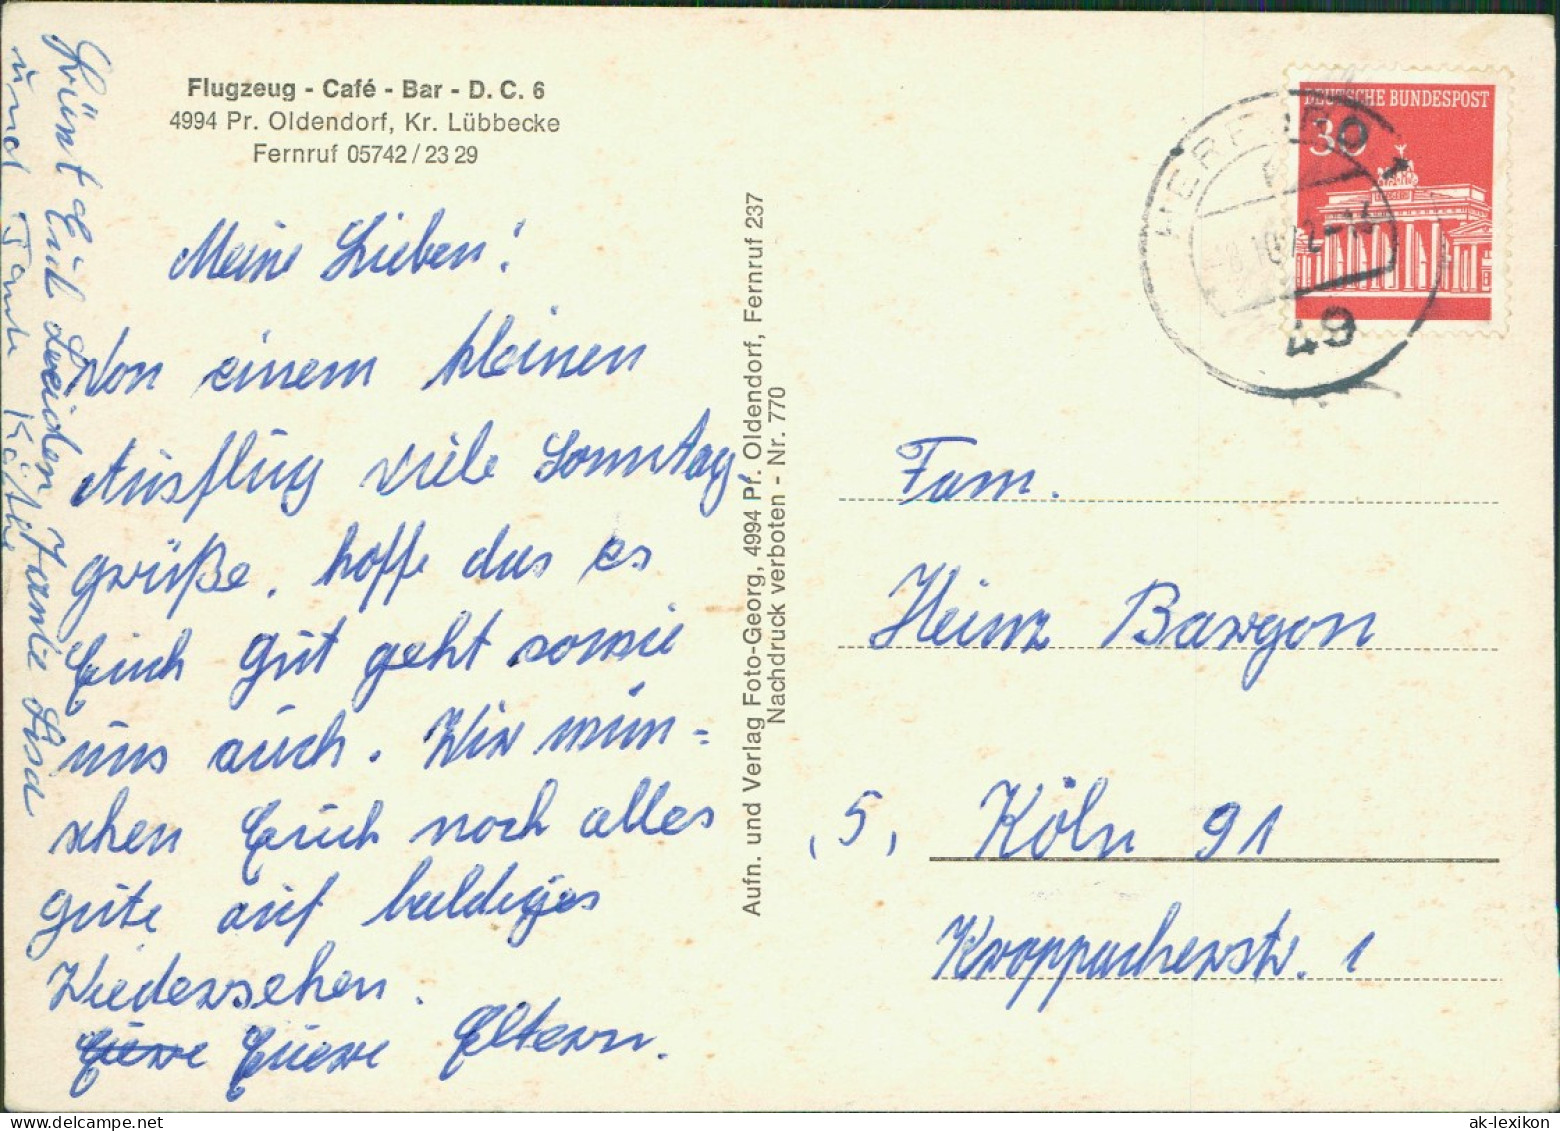 Flugzeug - Café - Bar - D. C. 6
4994 Pr. Oldendorf, Kr. Lübbecke
Fernruf 05742 / 23 29
Meine Lieben!
Von einem kleinen
Ausflug viele Sonntag,
grüße. hoffe das es
Euch gut geht sowie
uns auch. Wir wün=
schen Euch noch alles
gute auf baldiges
Wiedersehen.
Euere Euere Eltern.
Tante Lisa
und Tante Käthe
Aufn. und Verlag Foto-Georg, 4994 Pf. Oldendorf, Fernruf 237
Nachdruck verboten - Nr. 770
DEUTSCHE BUNDESPOST
30
HERFORD 1
49
Fam.
Heinz Bargon
(5) Köln 91
Kroppacherstr. 1
ak-lexikon